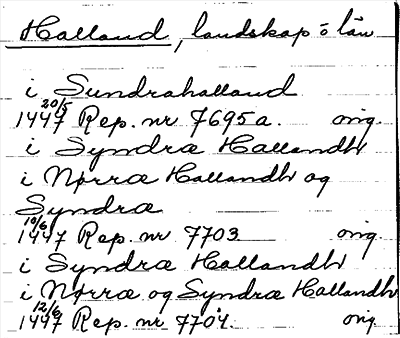 Halland, landskap o län
i Sundrahalland
20/5 1447 Rep. nr 7695a. orig.
i Syndræ Hallandh
i Nørræ Hallandh og
Syndræ
10/6 1447 Rep. nr 7703 orig.
i Syndræ Hallandh
i Nørræ og Syndræ Hallandh
12/6 1447 Rep. nr 7704. orig.